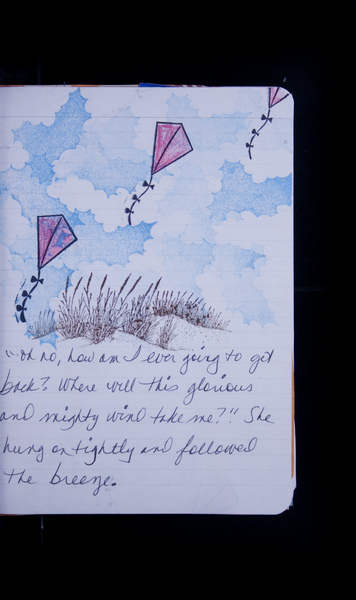 "oh no, how am I ever going to get
back? Where will this glorious
and mighty wind take me?" She
hung on tightly and followed
the breeze.